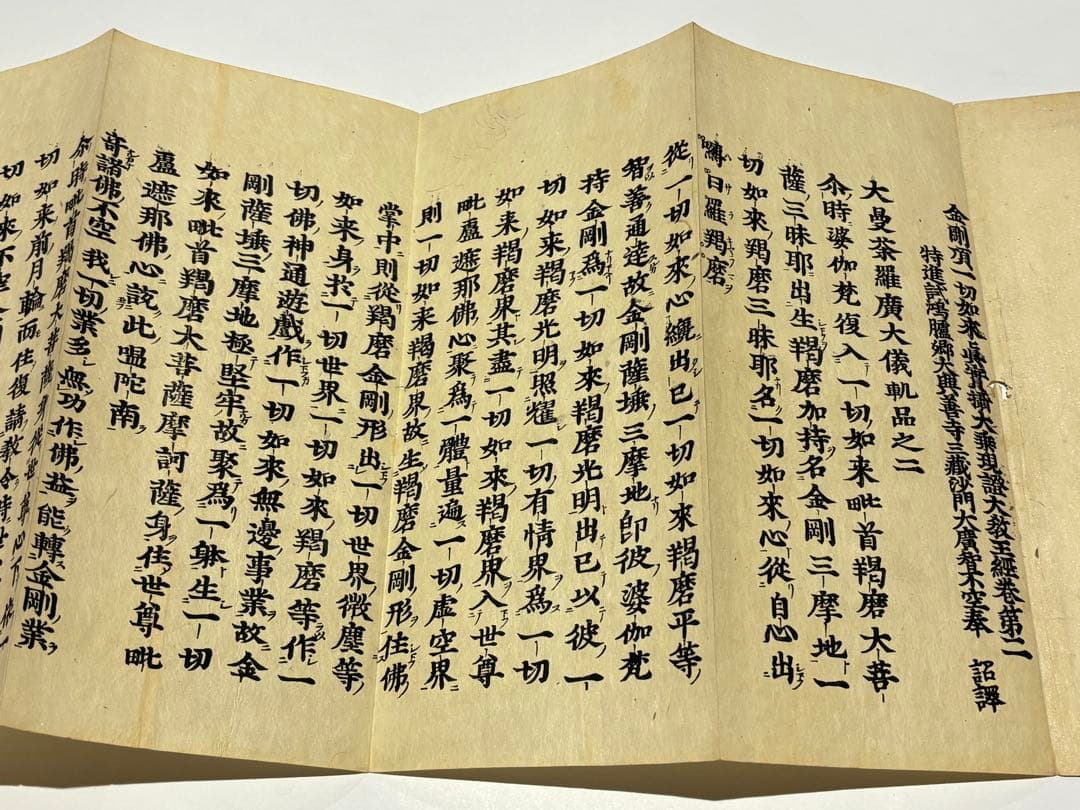 金剛頂一切如來眞實攝大乘現證大教王經卷第二
特進試鴻臚卿大興善寺三藏沙門大廣智不空奉 詔譯
大曼荼羅廣大儀軌品之二
尒時婆伽梵復入一切如来毗首羯磨大菩
薩三昧耶出生羯磨加持名金剛三摩地一
切如来羯磨三昧耶名一切如來心從自心出
嚩日羅羯磨
從一切如來心纔出已一切如來羯磨平等
智善通達故金剛薩埵三摩地即彼婆伽梵
持金剛爲一切如來羯磨光明出已以彼一
切如来羯磨光明照耀一切有情界爲一切
如来羯磨界其盡一切如來羯磨界入世尊
毗盧遮那佛心聚爲一體量遍一切虛空界
則一切如来羯磨界故生羯磨金剛形住佛
掌中則從羯磨金剛形出一切世界微塵等
如来身於一切世界一切如來羯磨等作一
切佛神通遊戲作一切如來無邊事業故金
剛薩埵三摩地極堅牢故聚爲一躰生一切
如來毗首羯磨大菩薩摩訶薩身住世尊毗
盧遮那佛心說此嗢陀南
奇諸佛不空 我一切業多 無功作佛益 能轉金剛業
尒時毗首羯磨大菩薩身從世尊心下
切如来前月輪而住復請教令時
切如來不空